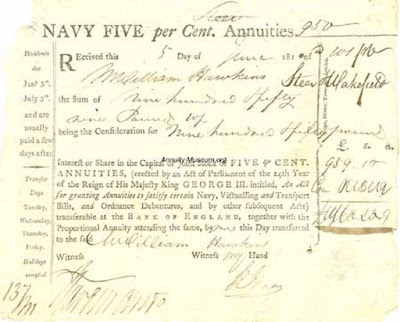 NAVY FIVE per Cent. Annuities. 950
Dividends due Jan. 5th, July 5th, and are usually paid a few days after.
Received this 5 Day of June 181
William Hawkins
the Sum of Nine hundred & fifty
nine Pounds
being the Consideration for Nine hundred & fifty pounds
AnnuityMuseum.org
£. s. d.
Interest or Share in the Capital or Joint Stock of FIVE ℔ CENT.
ANNUITIES, (erected by an Act of Parliament of the 24th Year
of the Reign of His Majesty King GEORGE III. intitled, An Act
for granting Annuities to satisfy certain Navy, Victualling and Transport
Bills, and Ordnance Debentures, and by other subsequent Acts)
transferable at the BANK OF ENGLAND, together with the
Proportional Annuity attending the same, by me this Day transferred
to the said William Hawkins
Transfer Days Tuesday, Wednesday, Thursday, Friday. Holidays excepted.
Witness Witness my Hand